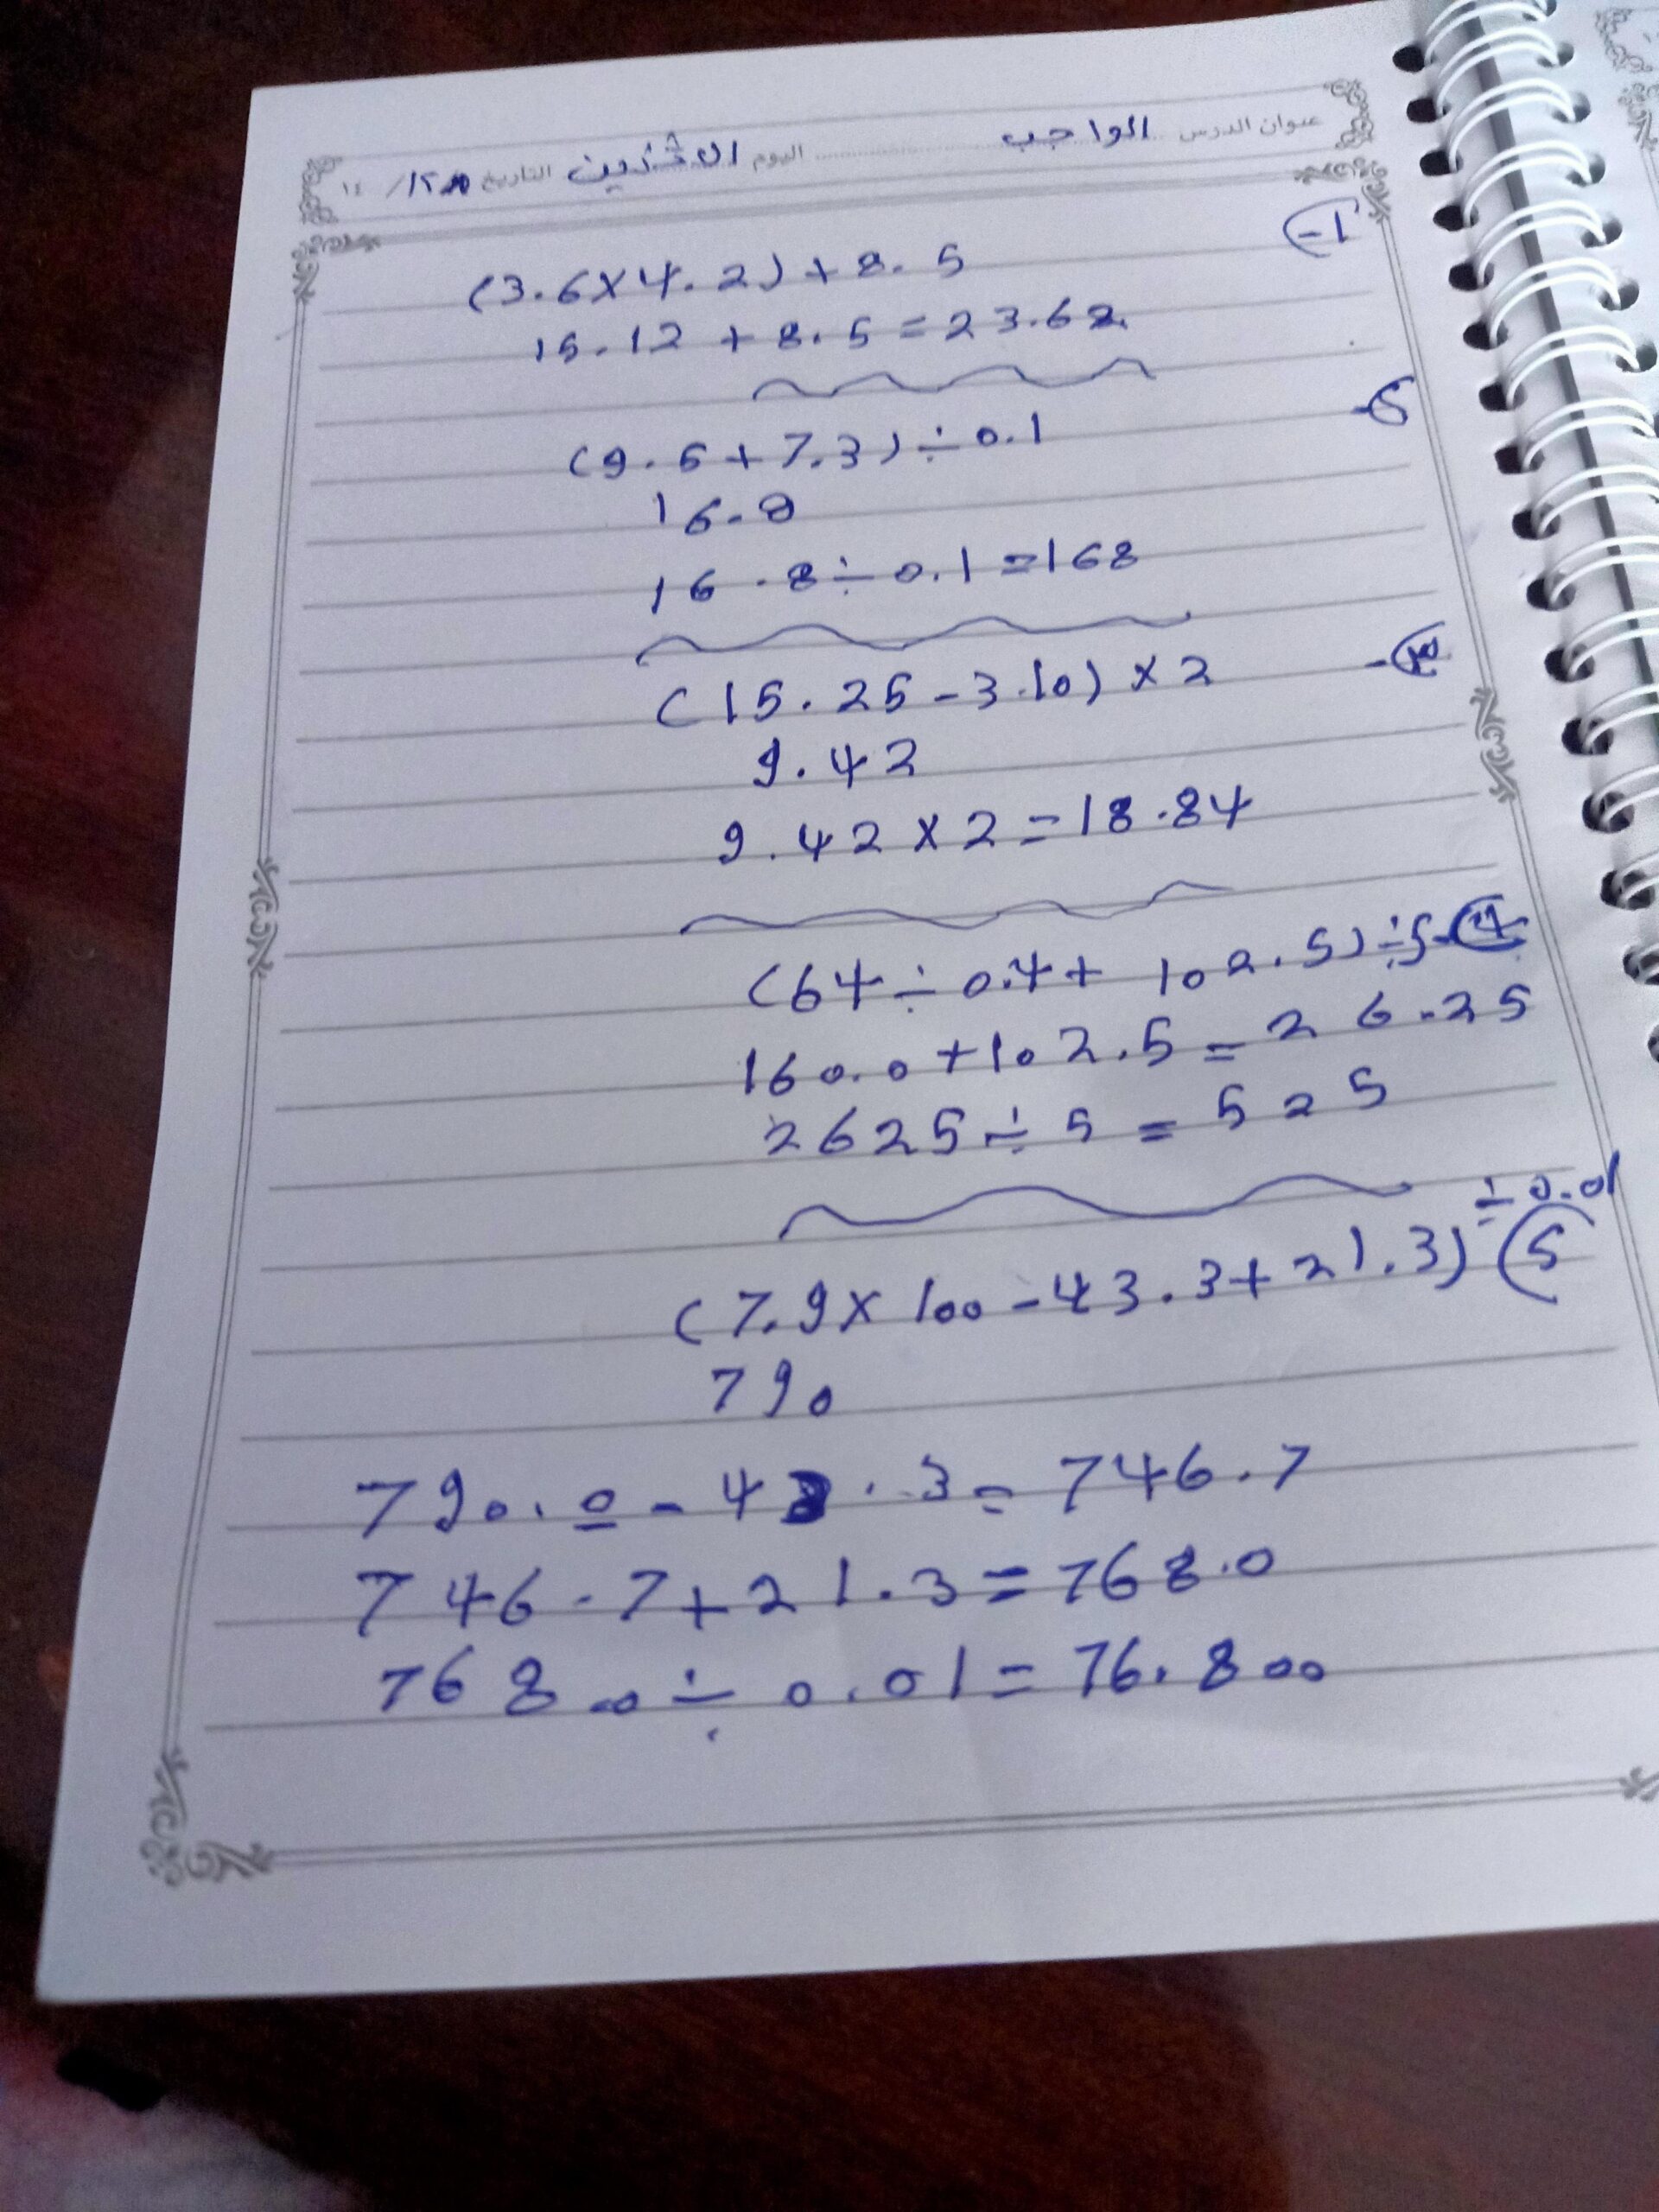 عنوان الدرس الواجب اليوم الاثنين التاريخ / / ١٤
(3.6×4.2)+8.5 1-
15.12+8.5=23.62
(9.5+7.3)÷0.1 2-
16.8
16.8÷0.1=168
(15.25-3.10)×2 3-
9.42
9.42×2=18.84
(64÷0.4+102.5)÷5 4-
160.0+102.5=26.25
2625÷5=525
÷0.01
(7.9×100-43.3+21.3) 5
790
790.0-43.3=746.7
746.7+21.3=768.0
768.00÷0.01=76.800